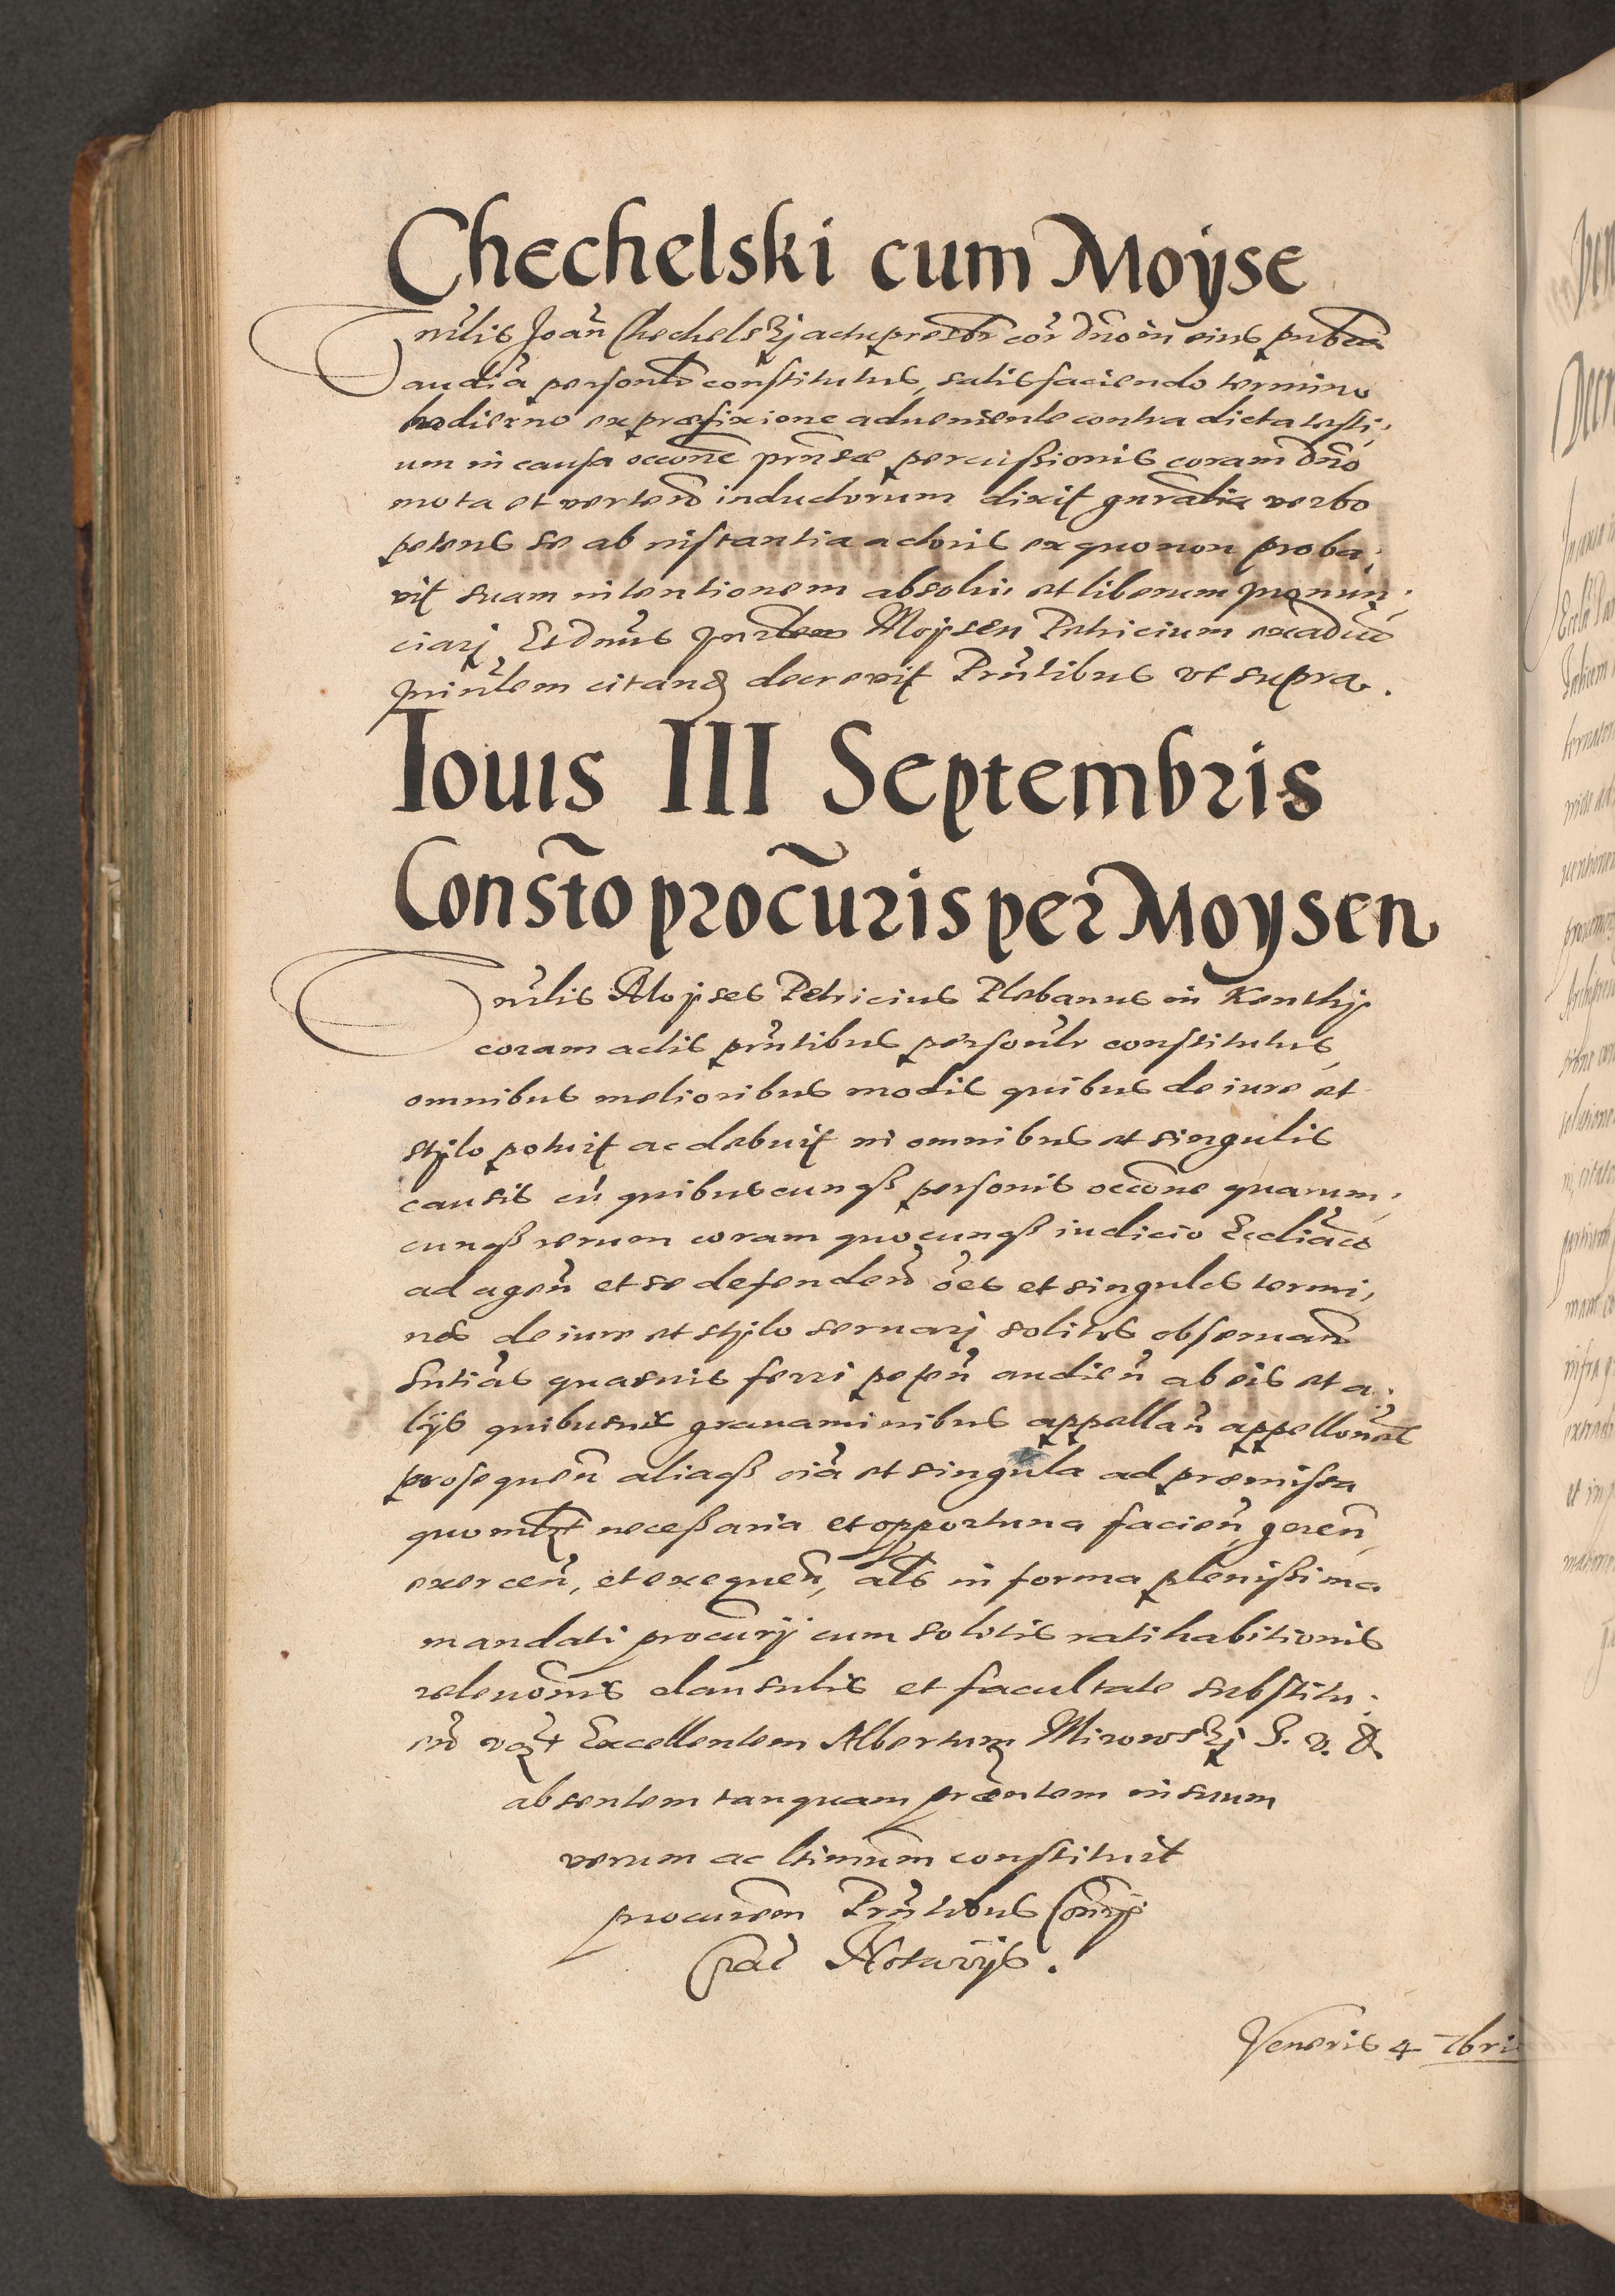 Chechelski cum Moÿse
Jnrlis Joañ Chechelskj actu presbr cor Dno in eius publica
audia personlr constitutus, satisfaciendo termino
hodierno ex præfixione adueniente contra dicta testi,
um in causa occone prnsæ percussionis coram Dno
mota et verten inductorum dixit gnralia verbo
petens se ab instantia actoris ex quo non proba,
vit suam intentionem absolui et liberum pronun,
ciarj Et Dnus Moÿsen Petricium ex aduo
citand decrevit Prntibus vt supra.
Iouis III Septembris
Consto procuris per Moysen
nrlis Moÿses Petricius Plebanus in Kenthÿ
coram actis prntibus personlr constitutus
omnibus melioribus modis quibus de iure et
stÿlo potuit ac debuit in omnibus et singulis
causis cu quibuscunqz personis occone quarum,
cunqz rerum coram quocunqz iudicio Eccliaco
ad agen et se defenden oes et singulos termi,
nos de iure et stÿlo seruarj solitos obseruan
Sntias quasuis ferri peten audien ab eis et a,
lÿs quibusuis grauaminibus appellan appellones
prosequen aliasqz oia et singula ad præmissa
quomlzt necessaria et opportuna facien, geren,
exercen, et exequen, als in forma plenissima
mandati procurÿ cum solitis ratihabitionis
releuonis clausulis et facultate substitu,
en vqzt Excellentem Albertum Mirowskj
absentem tanquam præntem in suum
verum ac ltimum constituit
procurem Prntibus Conrÿ
Crac Notarÿs.
Veneris 4 7bris